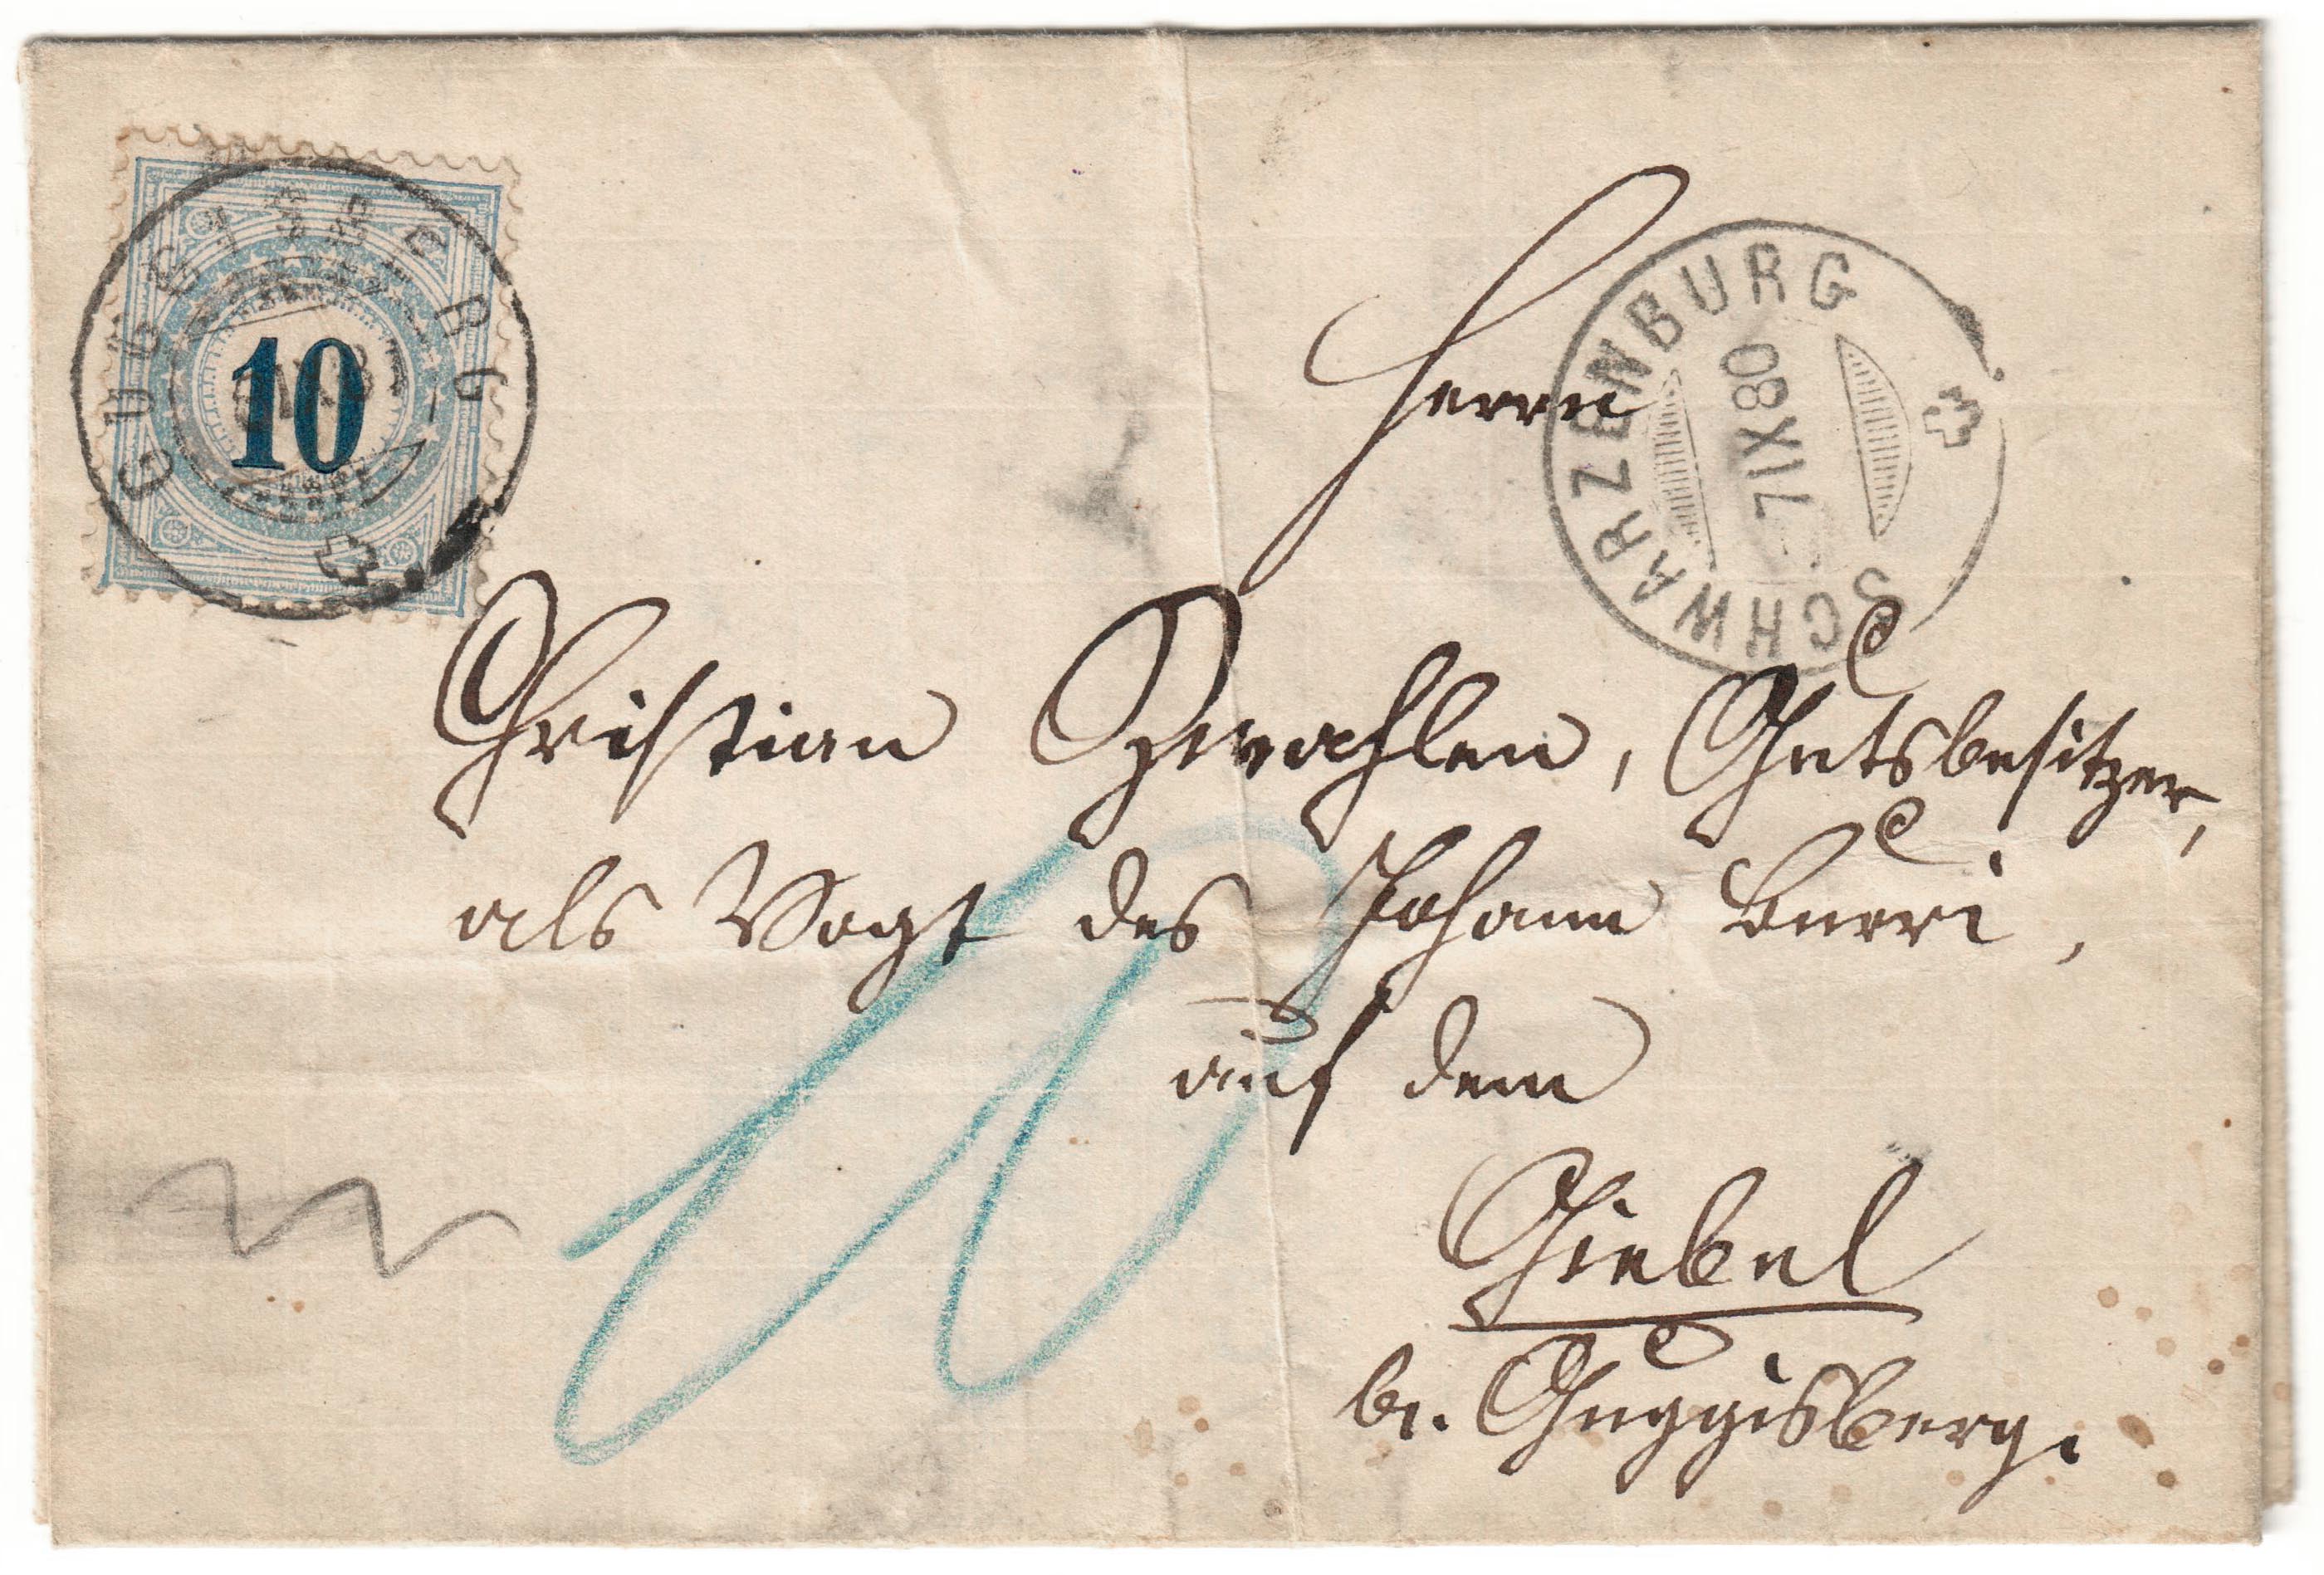 GUGGISBERG
10
SCHWARZENBURG
7 IX 80
Herrn
Christian Zwahlen, Gutsbesitzer,
als Vogt des Johann Burri,
auf dem
Giebel
b. Guggisberg.
10